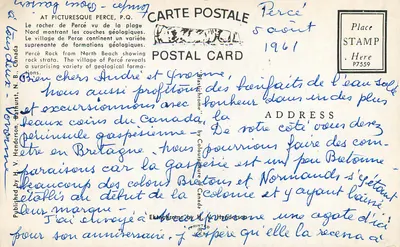 AT PICTURESQUE PERCE, P.Q.
Le rocher de Percé vu de la plage
Nord montrant les couches géologiques.
Le village de Percé contient un variété
suprenante de formations géologiques.
Percé Rock from North Beach showing
rock strata. The village of Percé reveals
a surprising variety of geological forma-
tions.
CARTE POSTALE
POSTAL CARD
Place
STAMP
Here
P7559
ADDRESS
Percé
5 août
1961
Bien chers André et Yvonne,
Nous aussi profitons des bienfaits de l'eau salée
et excursionnons avec bonheur dans un des plus
beaux coins du Canada, la
péninsule gaspésienne. De votre côté vous devez
être en Bretagne. Nous pourrions faire des com-
paraisons car la gaspésie est un peu Bretonne
beaucoup des colons Bretons et Normands s'y étant
établis au début de la Colonie et y ayant laissé
leur marque.
J'ai envoyé à une agate d'ici
pour son anniversaire. J'espère qu'elle la recevra